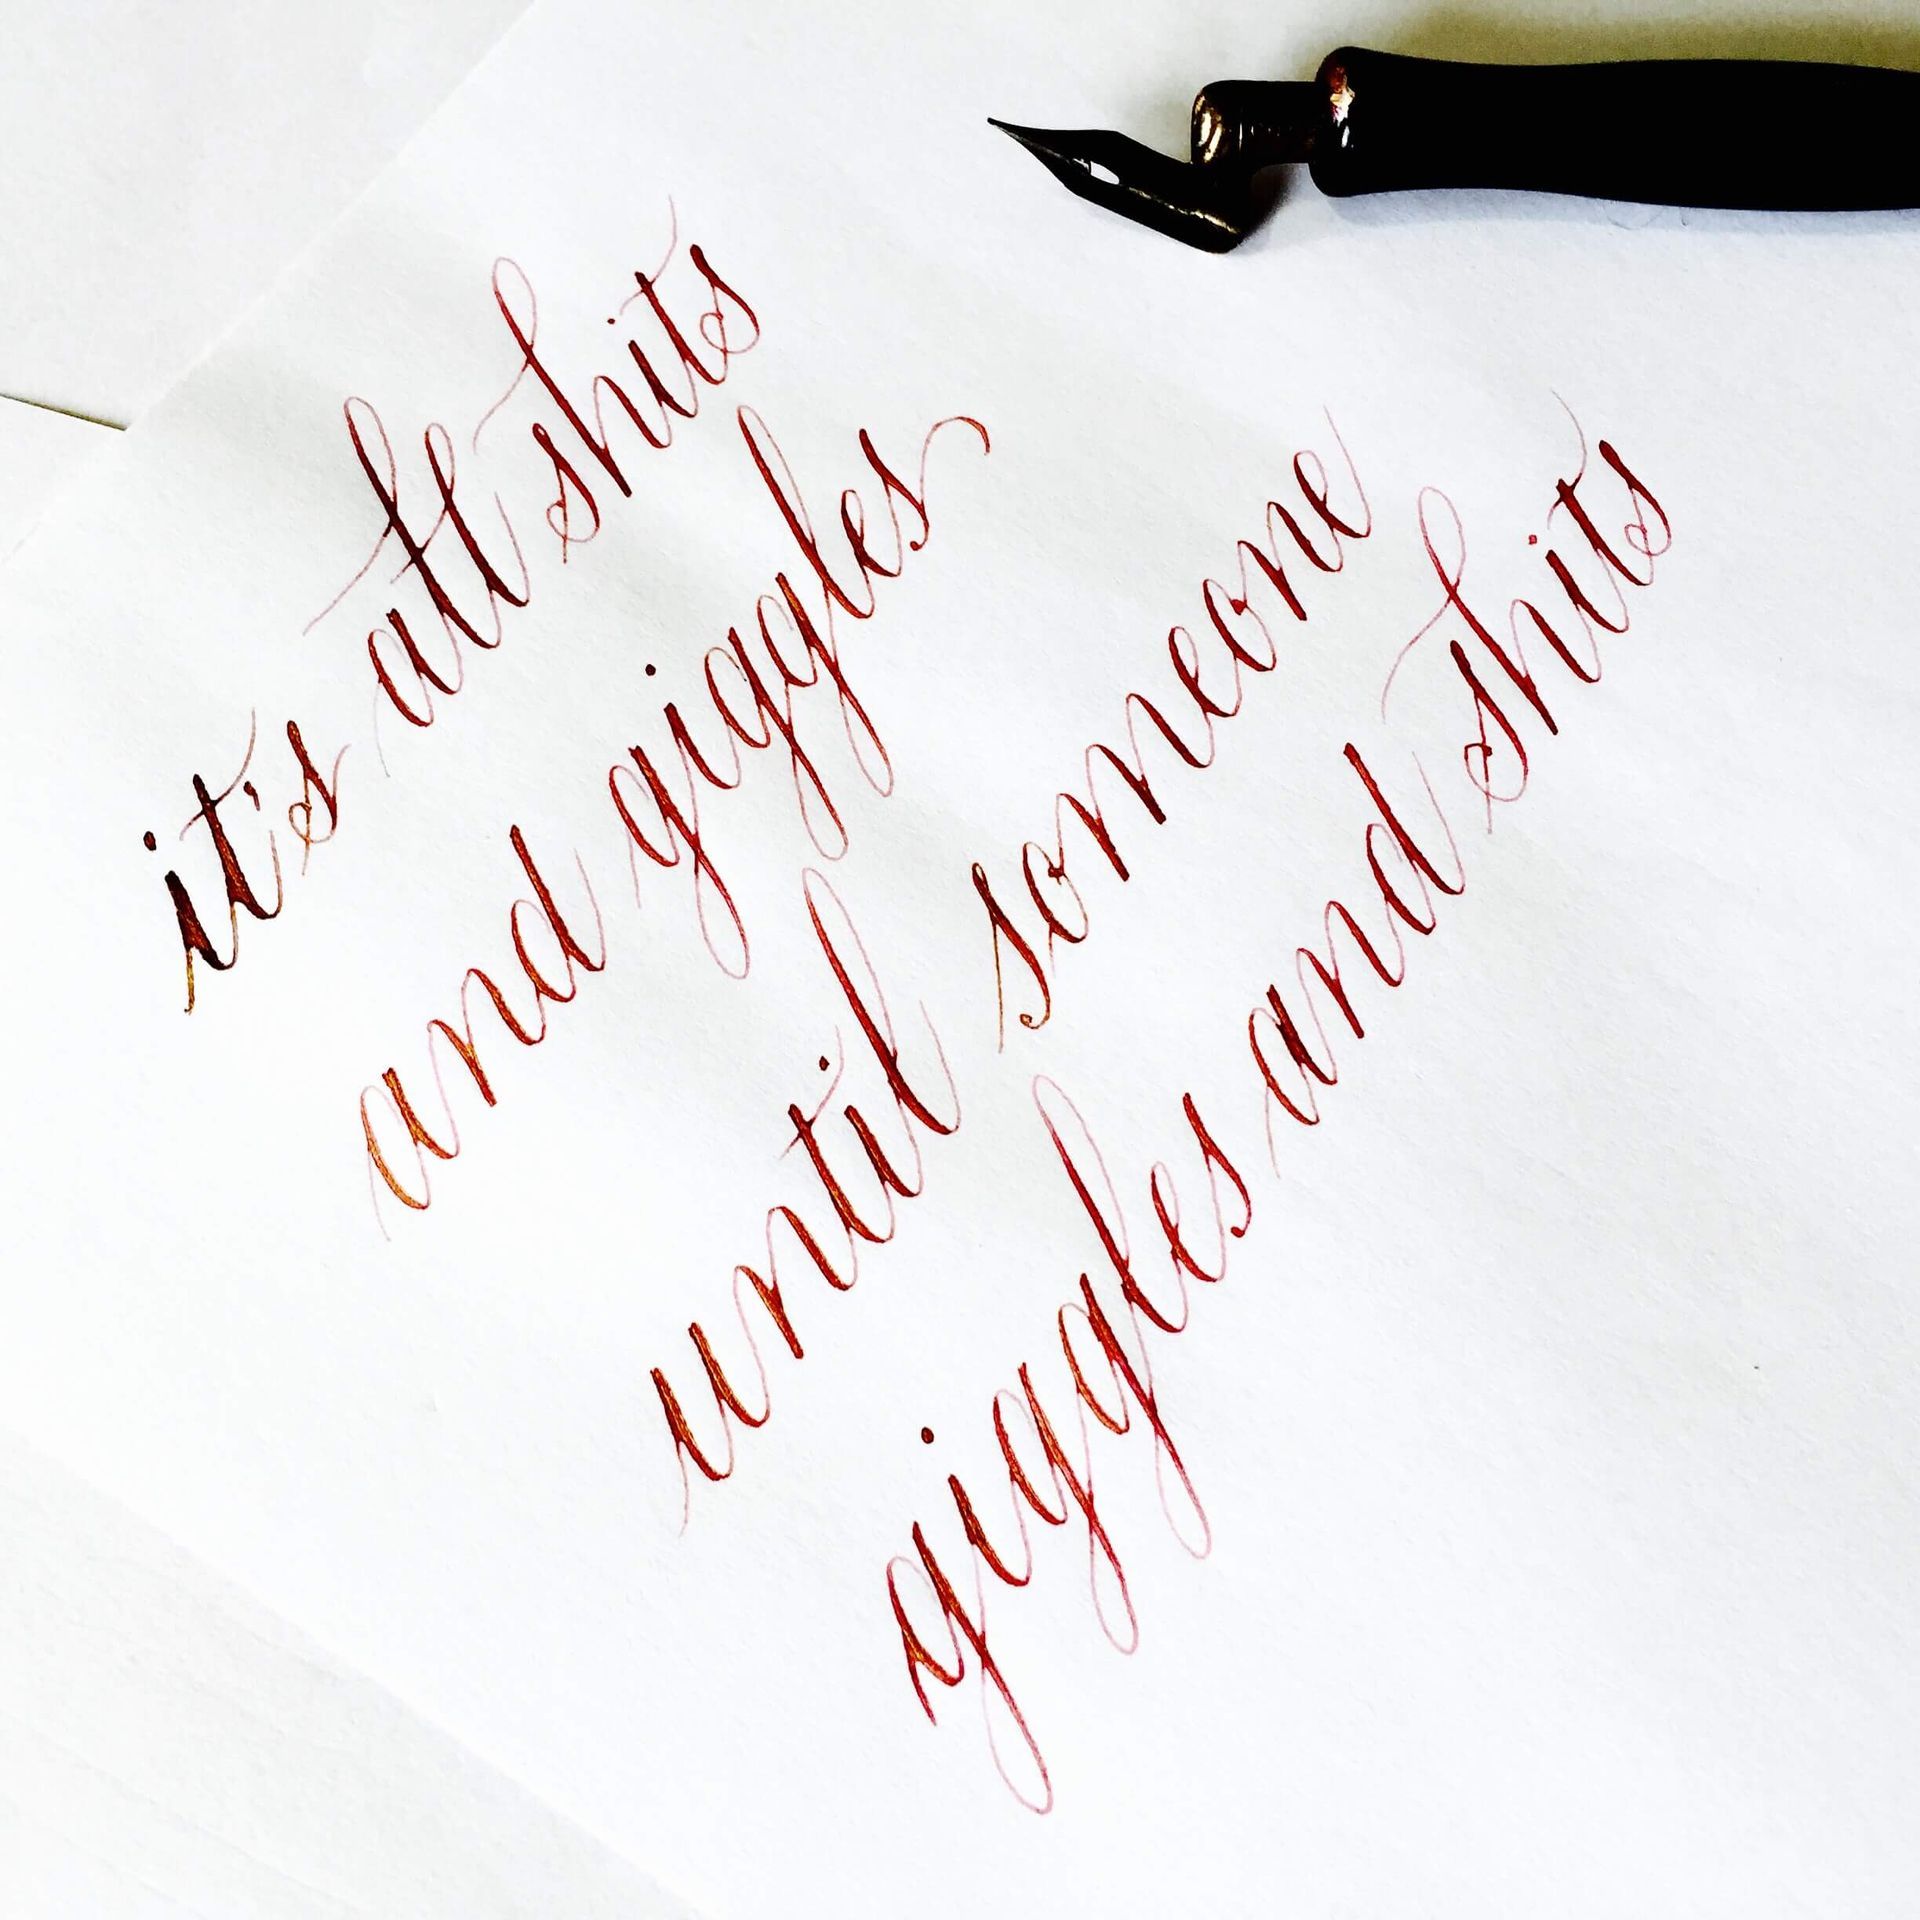 it's all shits
and giggles
until someone
giggles and shits